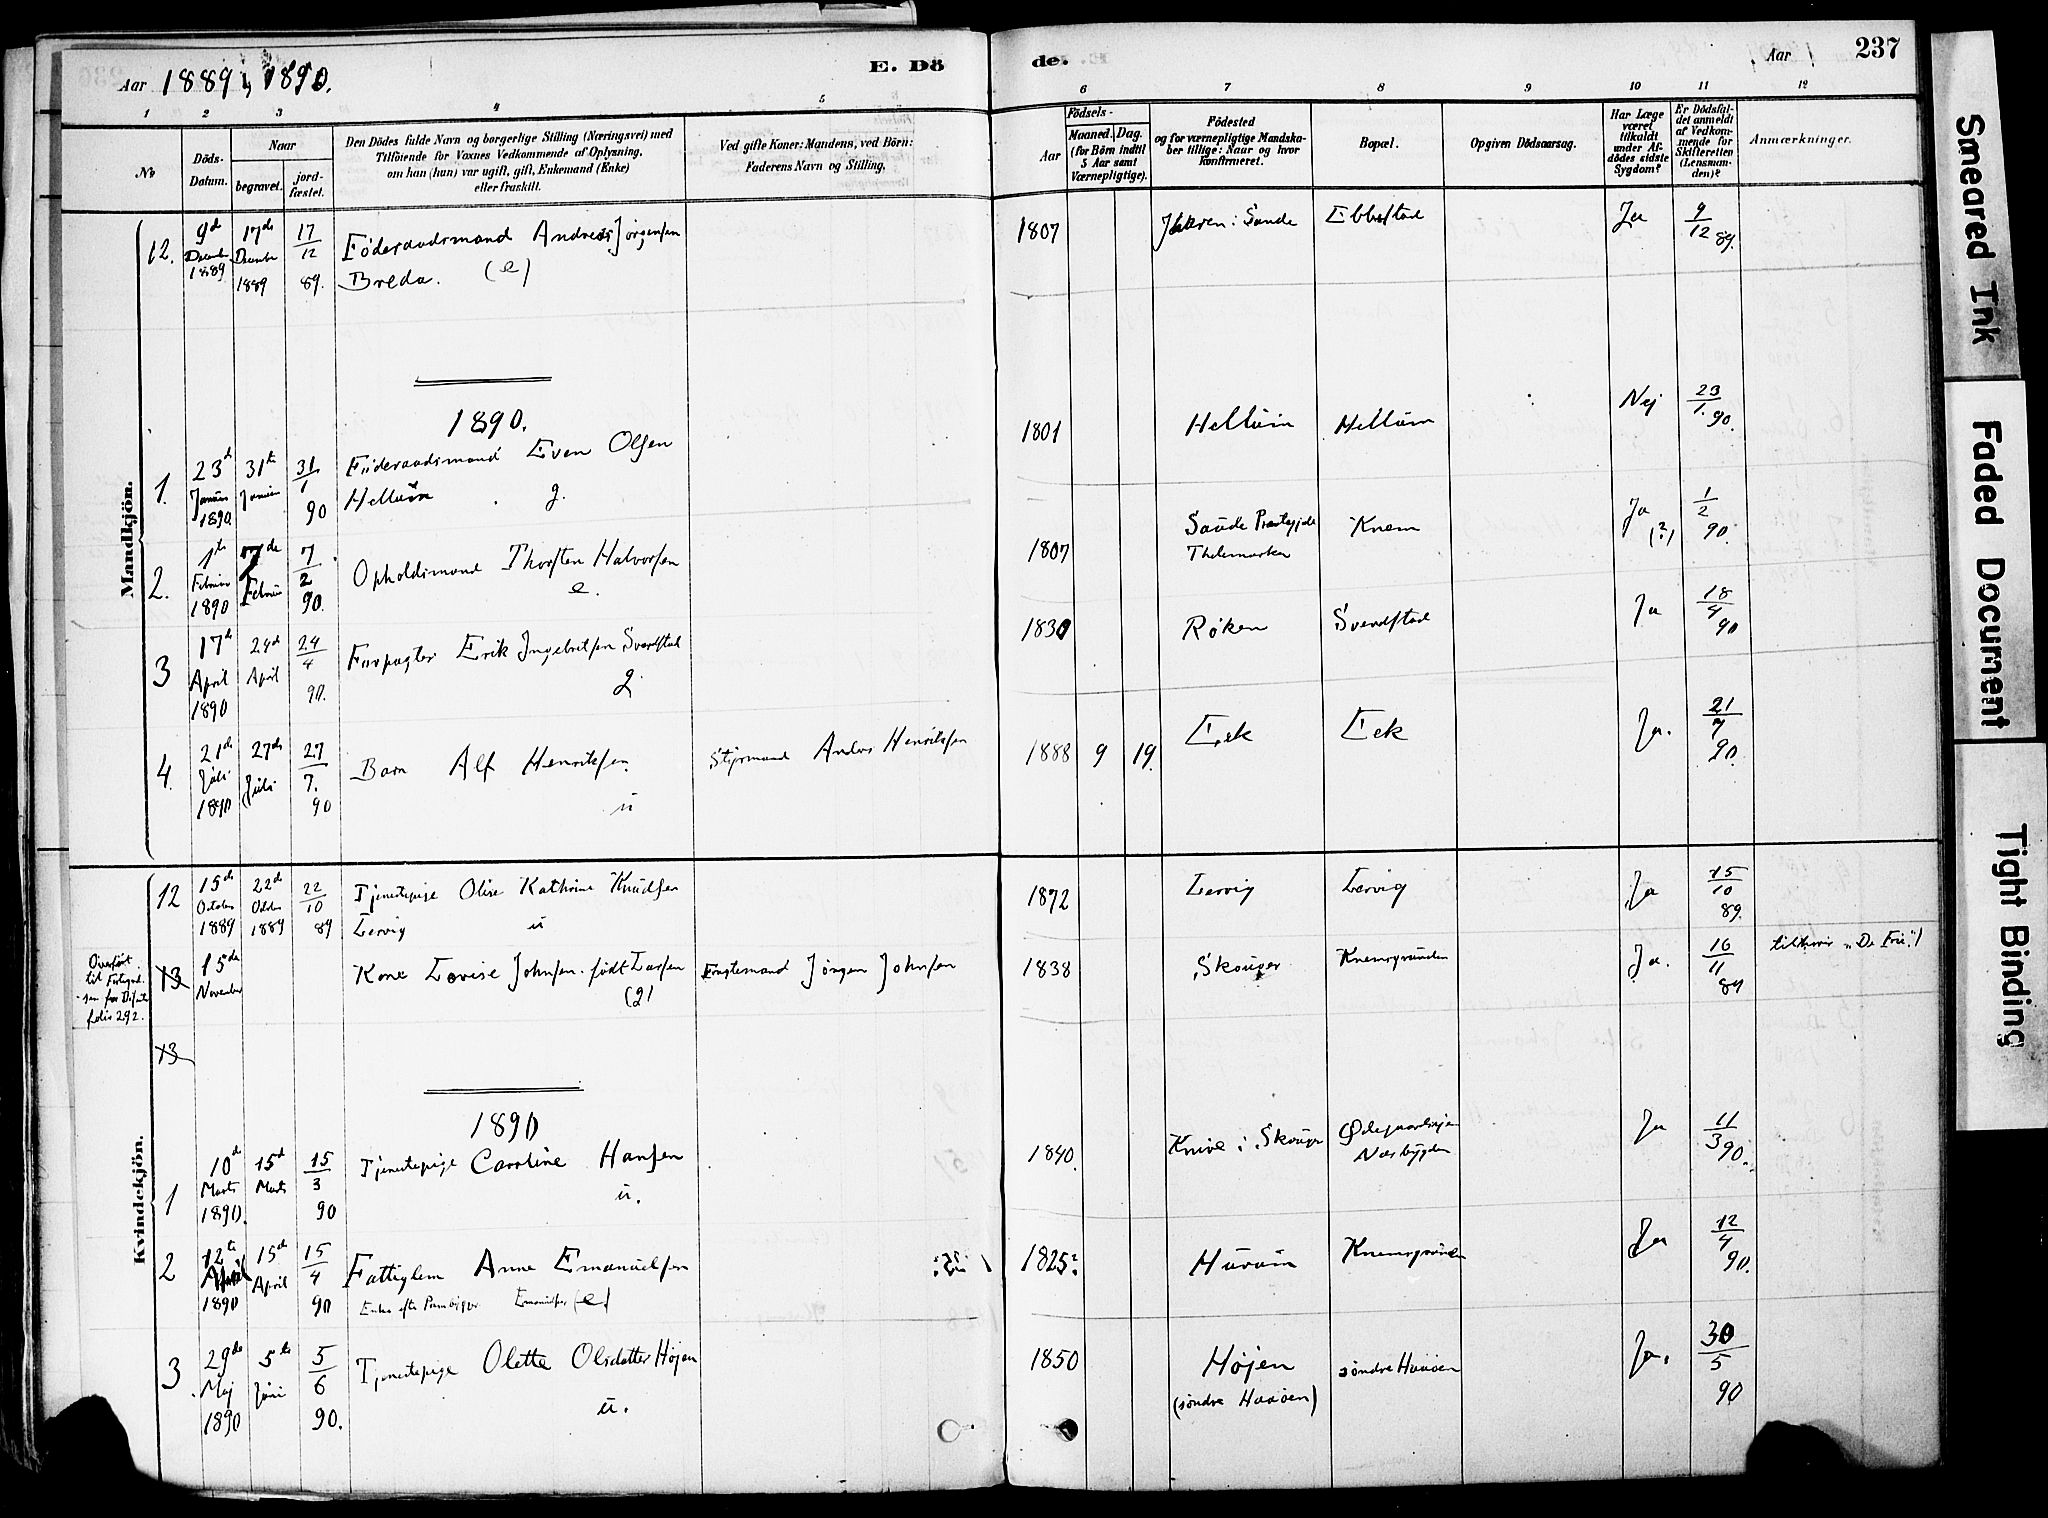 Aar 1889 & 1890.
E. Dö
de.
Aar
237
1 2 3 4 5 6 7 8 9 10 11 12
No
Döds-
Datum.
Naar
begravet.
jord-
fæstet.
Den Dödes fulde Navn og borgerlige Stilling (Næringsvei) med
Tilföiende for Voxnes Vedkommende af Oplysning,
om han (hun) var ugift, gift, Enkemand (Enke)
eller fraskilt.
Ved gifte Koner: Mandens, ved Börn:
Faderens Navn og Stilling.
Födsels-
Aar
Maaned. Dag.
(for Börn indtil
5 Aar samt
Værnepligtige).
Födested
og for værnepligtige Mandska-
ber tillige: Naar og hvor
konfirmeret.
Bopæl.
Opgiven Dödsaarsag.
Har Læge
været
tilkaldt
under Af-
dödes sidste
Sygdom?
Er Dödsfal-
det anmeldt
af Vedkom-
mende for
Skifteretten
(Lensman-
den)?
Anmærkninger.
Mandkjön.
12. 9de December 1889 17de December 1889 17/12 89. Föderaadsmand Andreas Jörgensen
Breda. (e)
1807 Sande Ebbestad Ja 9/12 89.
1890.
1. 23d Januar 1890. 31te Januar 31/1 90 Föderaadsmand Even Olsen
Hellum g.
1801 Hellum Hellum Nej 23/1. 90.
2. 1ste Februar 1890 7de Februar 7/2 90. Opholdsmand Thorsten Halvorsen
e.
1807 Saude Præstegjeld
Thelemarken Knem Ja (?) 1/2 90.
3 17de April 1890 24d April 24/4 90. Forpagter Erik Ingebretsen Sverdstad
g
1830 Røken Sverdstad Ja 18/4 90
4. 21de Juli 1890 27de Juli 27/7. 90 Barn Alf Henriksen.
u
Styrmand Anders Henriksen 1888 9 19. Eek Eek Ja. 21/7 90.
Kvindekjön.
12 15de October 1889 22de October 1889 22/10 89 Tjenestepige Olise Kathrine Knudsen
Lervig u
1872 Lervig Lervig Ja 15/10 89.
Overført
til Fortegnel-
sen for Dissent.
folio 292.
13 15de November Kone Lovise Johnsen. født Larsen
(g)
Jörgen Johnsen 1838 Skouger Knemsgrunden Ja. 16/11 89 tilhører "De Frie"!
13
1890
1 10de Marts 1890. 15d Marts 15/3 90 Tjenestepige Caroline Hansen
u.
1840. Knive i Skouger Ødegaardseje
Næsbygden Ja 11/3 90.
2 12te April 1890 15d April 15/4 90 Fattiglem Anne Emanuelsen
Enke efter Emanuelsen (e)
1825? Hurum Knemsgrunden Ja 12/4 90.
3 29de Maj 1890 5te Juni 5/6 90. Tjenestepige Olette Olsdatter Højen
u.
1850 Højen
(søndre Haaøen) søndre Haaøen Ja. 30/5 90
Smeared Ink
Faded Document
Tight Binding